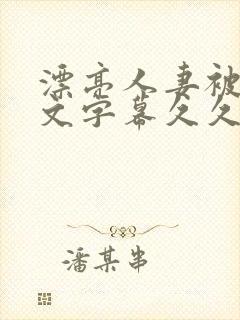 漂亮人妻被
文字幕久久
潘某串